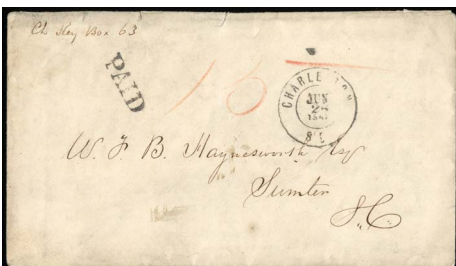 Box 63
PAID
10
CHARLESTON
JUN
S.C.
W. F. B. Haynesworth Esq
Sumter
S.C.